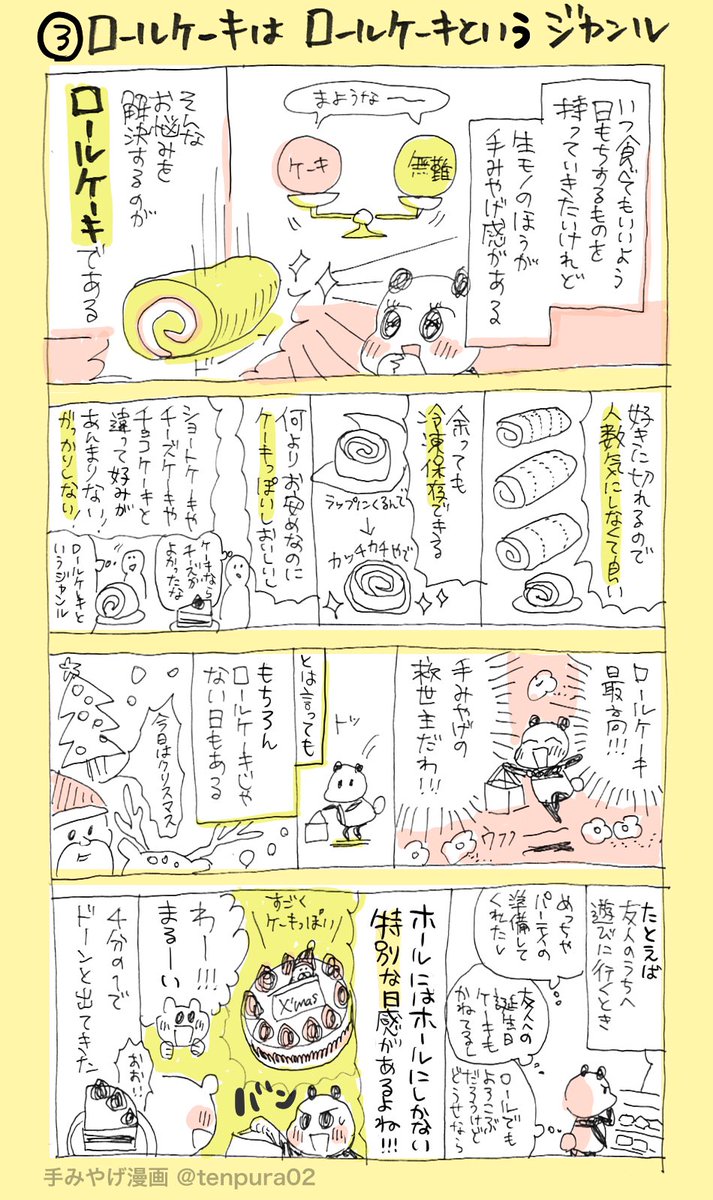 ③ロールケーキは ロールケーキという ジャンル
いつ食べてもいいよう
日もちするものを
持っていきたいけれど
生モノのほうが
手みやげ感がある
まような〜
ケーキ
無難
そんな
お悩みを
解決するのが
ロールケーキである
ドーン
好きに切れるので
人数気にしなくて良い
余っても
冷凍保存できる
ラップにくるんで
カッチカチやで
何よりお安めなのに
ケーキっぽいしおいしい
ショートケーキや
チーズケーキや
チョコケーキと
違って好みが
あんまりない!
がっかりしない
ケーキなら
チーズが
よかったな
ロールケーキと
いうジャンル
ロールケーキ
最高!!!
手みやげの
救世主だわ!!!
ウフフ
トッ
とは言っても
もちろん
ロールケーキじゃ
ない日もある
今日はクリスマス
たとえば
友人のうちへ
遊びに行くとき
めっちゃ
パーティの
準備して
くれたし
友人への
誕生日
ケーキも
かねてるし
ロールでも
よろこぶ
だろうけど
どうせなら
ホールにはホールにしかない
特別な日感があるよね!!!
すごく
ケーキっぽい!
X'mas
バン
わー!!!
まるーい
4分の1で
ドーンと出てきた
おお!!
手みやげ漫画 @tenpura02